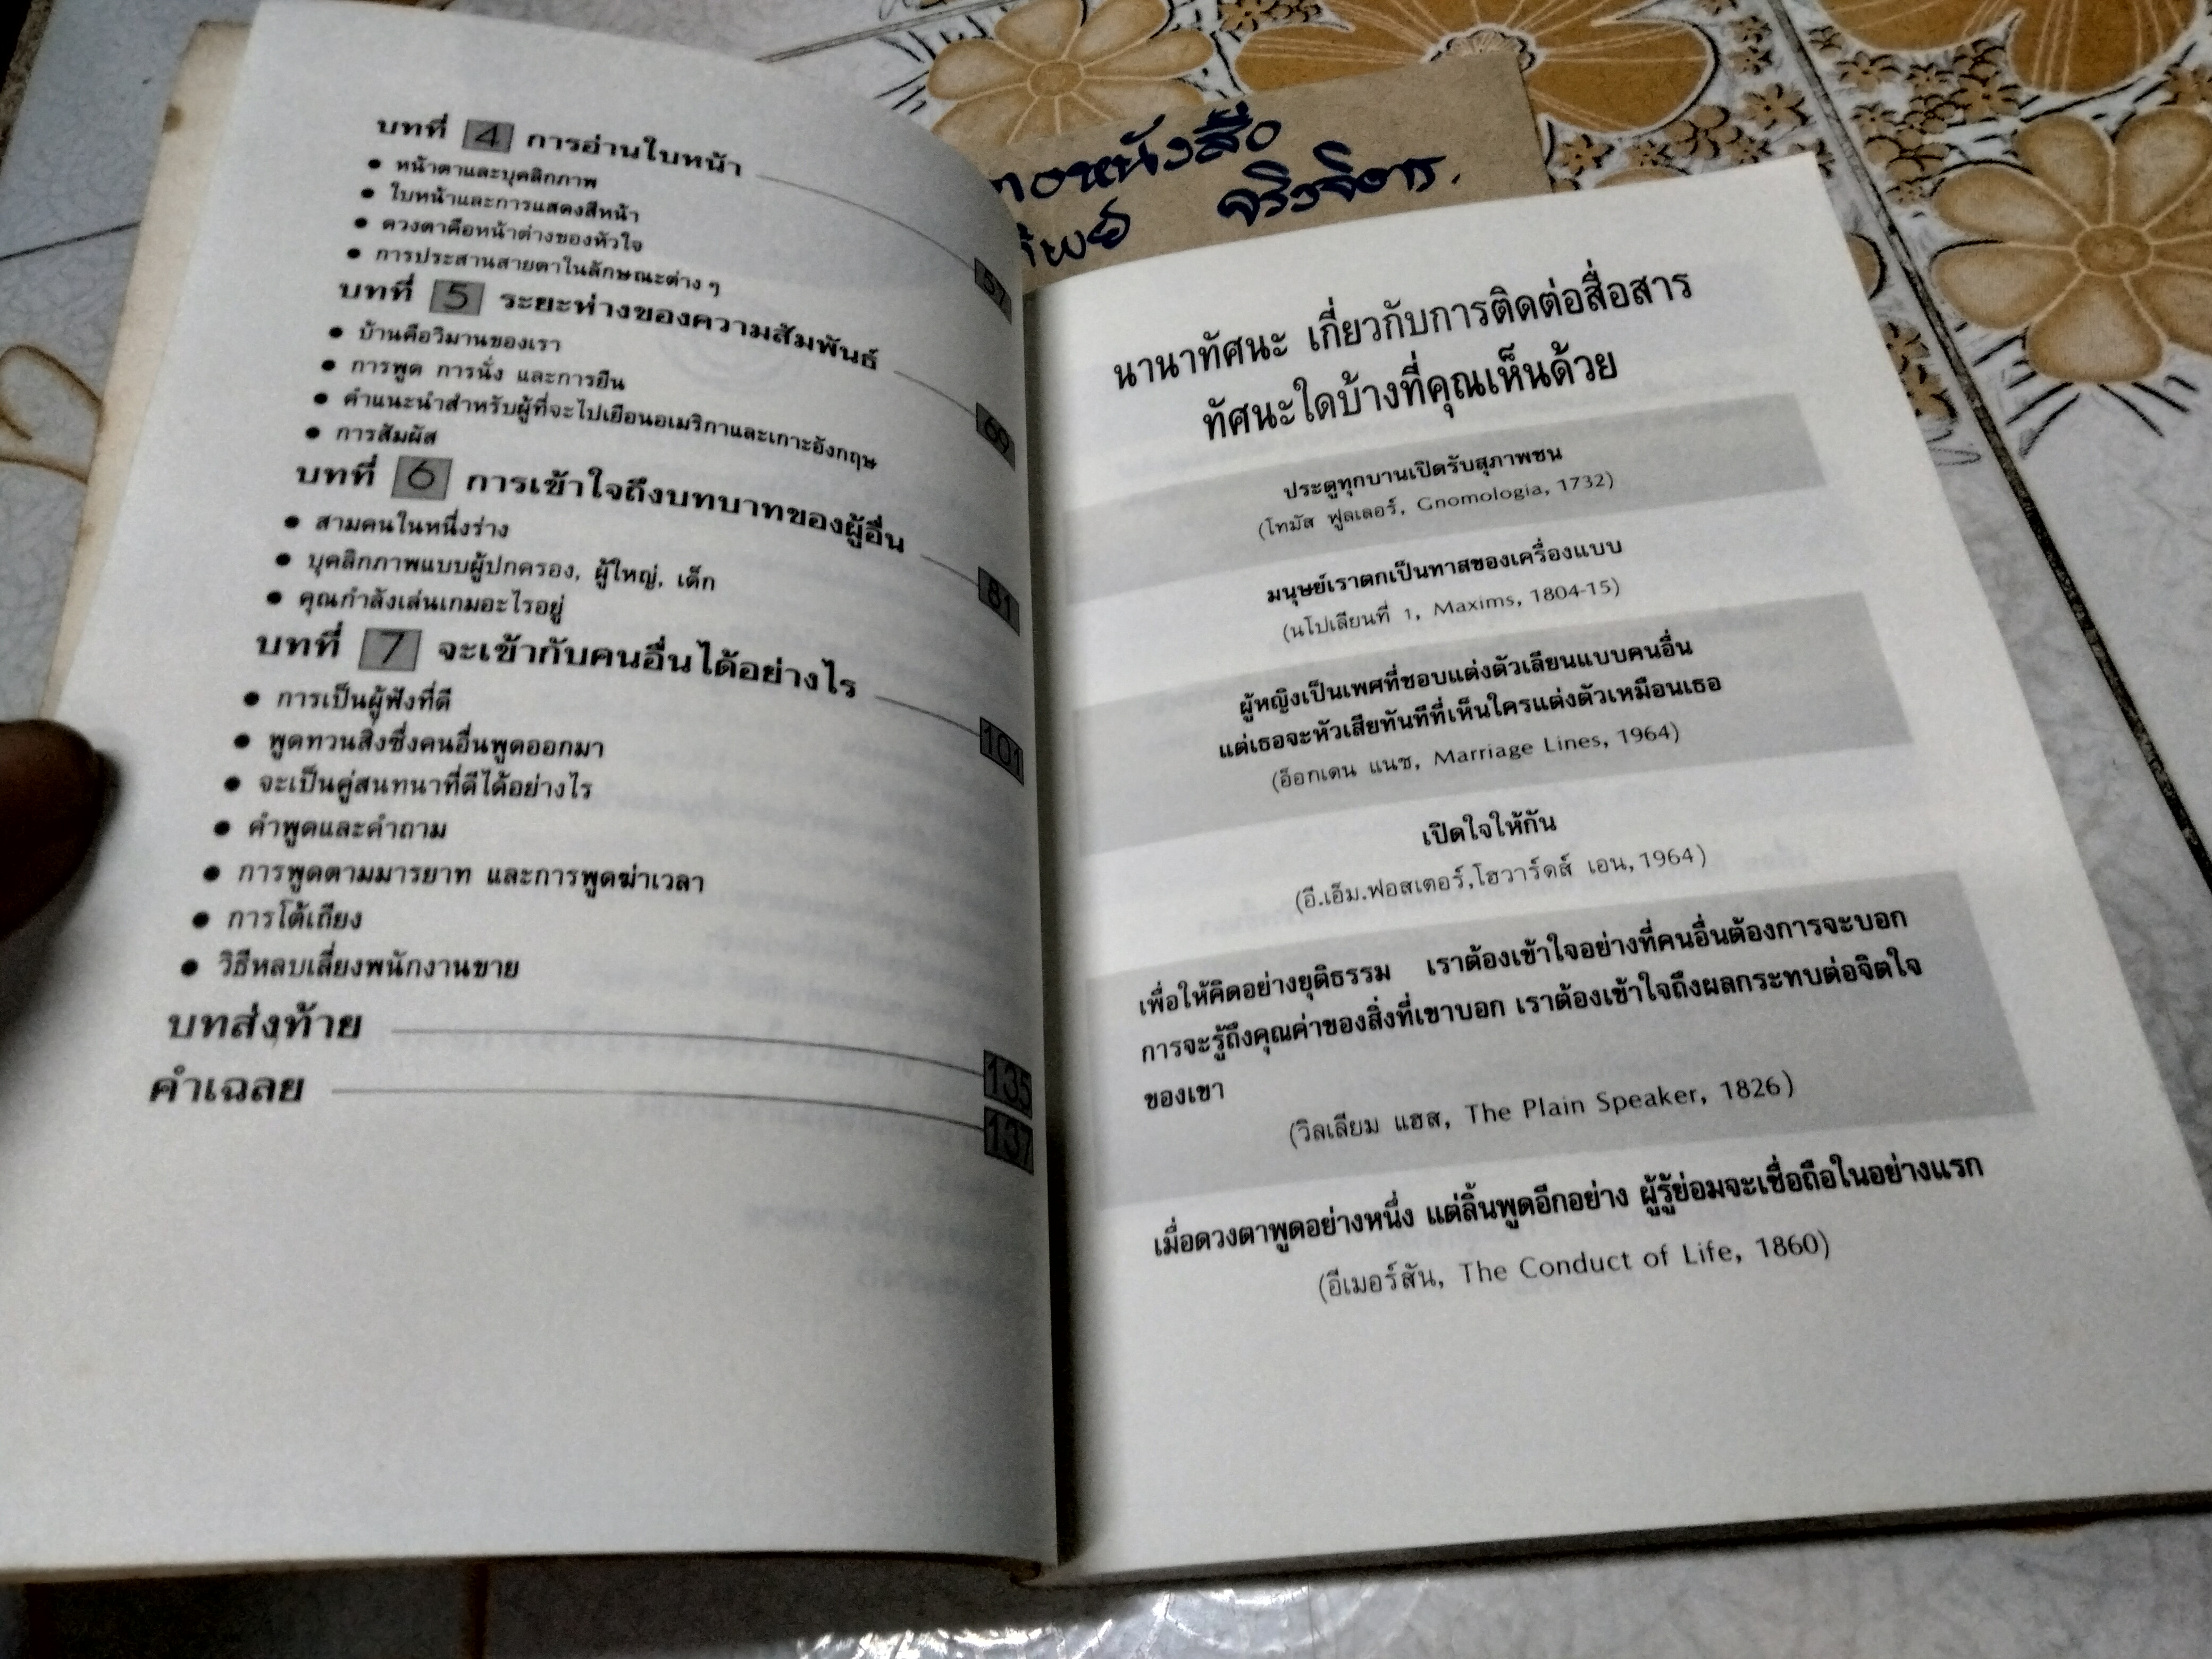 บทที่ 4 การอ่านใบหน้า 57
● หน้าตาและบุคลิกภาพ
● ใบหน้าและการแสดงสีหน้า
● ดวงตาคือหน้าต่างของหัวใจ
● การประสานสายตาในลักษณะต่าง ๆ
บทที่ 5 ระยะห่างของความสัมพันธ์ 69
● บ้านคือวิมานของเรา
● การพูด การนั่ง และการยืน
● คำแนะนำสำหรับผู้ที่จะไปเยือนอเมริกาและเกาะอังกฤษ
● การสัมผัส
บทที่ 6 การเข้าใจถึงบทบาทของผู้อื่น 81
● สามคนในหนึ่งร่าง
● บุคลิกภาพแบบผู้ปกครอง, ผู้ใหญ่, เด็ก
● คุณกำลังเล่นเกมอะไรอยู่
บทที่ 7 จะเข้ากับคนอื่นได้อย่างไร 101
● การเป็นผู้ฟังที่ดี
● พูดทวนสิ่งซึ่งคนอื่นพูดออกมา
● จะเป็นคู่สนทนาที่ดีได้อย่างไร
● คำพูดและคำถาม
● การพูดตามมารยาท และการพูดฆ่าเวลา
● การโต้เถียง
● วิธีหลบเลี่ยงพนักงานขาย
บทส่งท้าย 135
คำเฉลย 137
หนังสือ
นานาทัศนะ เกี่ยวกับการติดต่อสื่อสาร
ทัศนะใดบ้างที่คุณเห็นด้วย
ประตูทุกบานเปิดรับสุภาพชน
(โทมัส ฟูลเลอร์, Gnomologia, 1732)
มนุษย์เราตกเป็นทาสของเครื่องแบบ
(นโปเลียนที่ 1, Maxims, 1804-15)
ผู้หญิงเป็นเพศที่ชอบแต่งตัวเลียนแบบคนอื่น
แต่เธอจะหัวเสียทันทีที่เห็นใครแต่งตัวเหมือนเธอ
(อ็อกเดน แนช, Marriage Lines, 1964)
เปิดใจให้กัน
(อี.เอ็ม.ฟอสเตอร์,โฮวาร์ดส์ เอน,1964)
เพื่อให้คิดอย่างยุติธรรม เราต้องเข้าใจอย่างที่คนอื่นต้องการจะบอก
การจะรู้ถึงคุณค่าของสิ่งที่เขาบอก เราต้องเข้าใจถึงผลกระทบต่อจิตใจ
ของเขา
(วิลเลียม แฮส, The Plain Speaker, 1826)
เมื่อดวงตาพูดอย่างหนึ่ง แต่ลิ้นพูดอีกอย่าง ผู้รู้ย่อมจะเชื่อถือในอย่างแรก
(อีเมอร์สัน, The Conduct of Life, 1860)